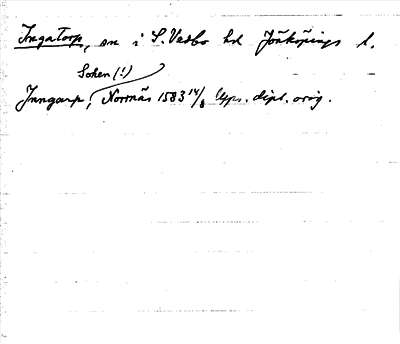 Ingatorp, sn i S. Vedbo hd Jönköpings l.
Soken (!)
Inngarp, Norrnäs 1583 14/8 Upps. dipl. orig.